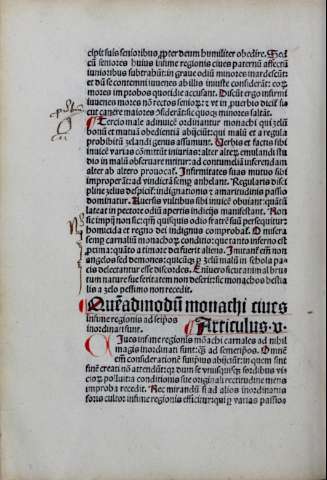 cipit suis senioribus ꝓpter deum humiliter obedire. Sed
cũ seniores huius infime regionis ciues paternũ affectũ
iunioribus subtrahũt: in graue odiũ minores inardescũt:
et dũ se contemni iuuenes abillis iniuste considerãt: eos
improbos quotidie accusant. Discũt ergo infirmi
iuuenes mores nõ rectos
cut canere maiores
Tercio male adinuicẽ ordinantur monachi qui zelũ
bonũ et mutuã obedientiã abijciũt: qui malũ et a regula
prohibitũ zelandi genus assumunt. Verbis et factis sibi
inuicẽ varias cõmittũt iniurias: alter alteꝝ emulandi stu
dio in malũ obseruare nititur: ad contumeliã inferendam
alter ab altero prouocat᷑. Infirmitates suas mutuo sibi
improperãt: ad vindictã semꝑ anhelant. Regularis disci
pline zelus despicit᷑: indignationis et amaritudinis passio
dominatur. Auersis vultibus sibi inuicẽ obuiant: quãtũ
lateat in pectore odiũ apertis indicijs manifestant.
sic impij non sic: qm̃ quisquis odio fratrẽ suũ persequitur:
homicida et regno dei indignus comprobat᷑. O misera
semꝑ carnaliũ monachoꝝ conditio: que tanto inferno est
proxima: quãto a timore dei fuerit aliena. Imitant᷑ em̃ non
angelos sed demones: quicũqꝫ ꝑ zelũ malũ in schola pa
cis delectantur esse discordes. Enimuero sicut animal bru
tum nature sue feritatem non deserit: sic monachos bestia
lis a zelo pessimo non recedit.
Quẽadmodũ monachi ciues
infime regionis ad seipos
inordinati sunt. Articulus. v.
Ciues infime regionis mõachi carnales ad nihil
magis inordinati sunt: qꝫ ad semetipsos. Omnẽ
em̃ considerationẽ sui ipsius abijciũt: in quem sint
finẽ creati nõ attendũt: qꝫ dum se vniusquisqꝫ sordibus vi
cioꝝ polluit: a conditionis sue originali rectitudine mens
improba recedit. Nec mirandũ si ad alios inordinatus
foris cultor infime regionis efficitur: qui ꝑ varias passiões